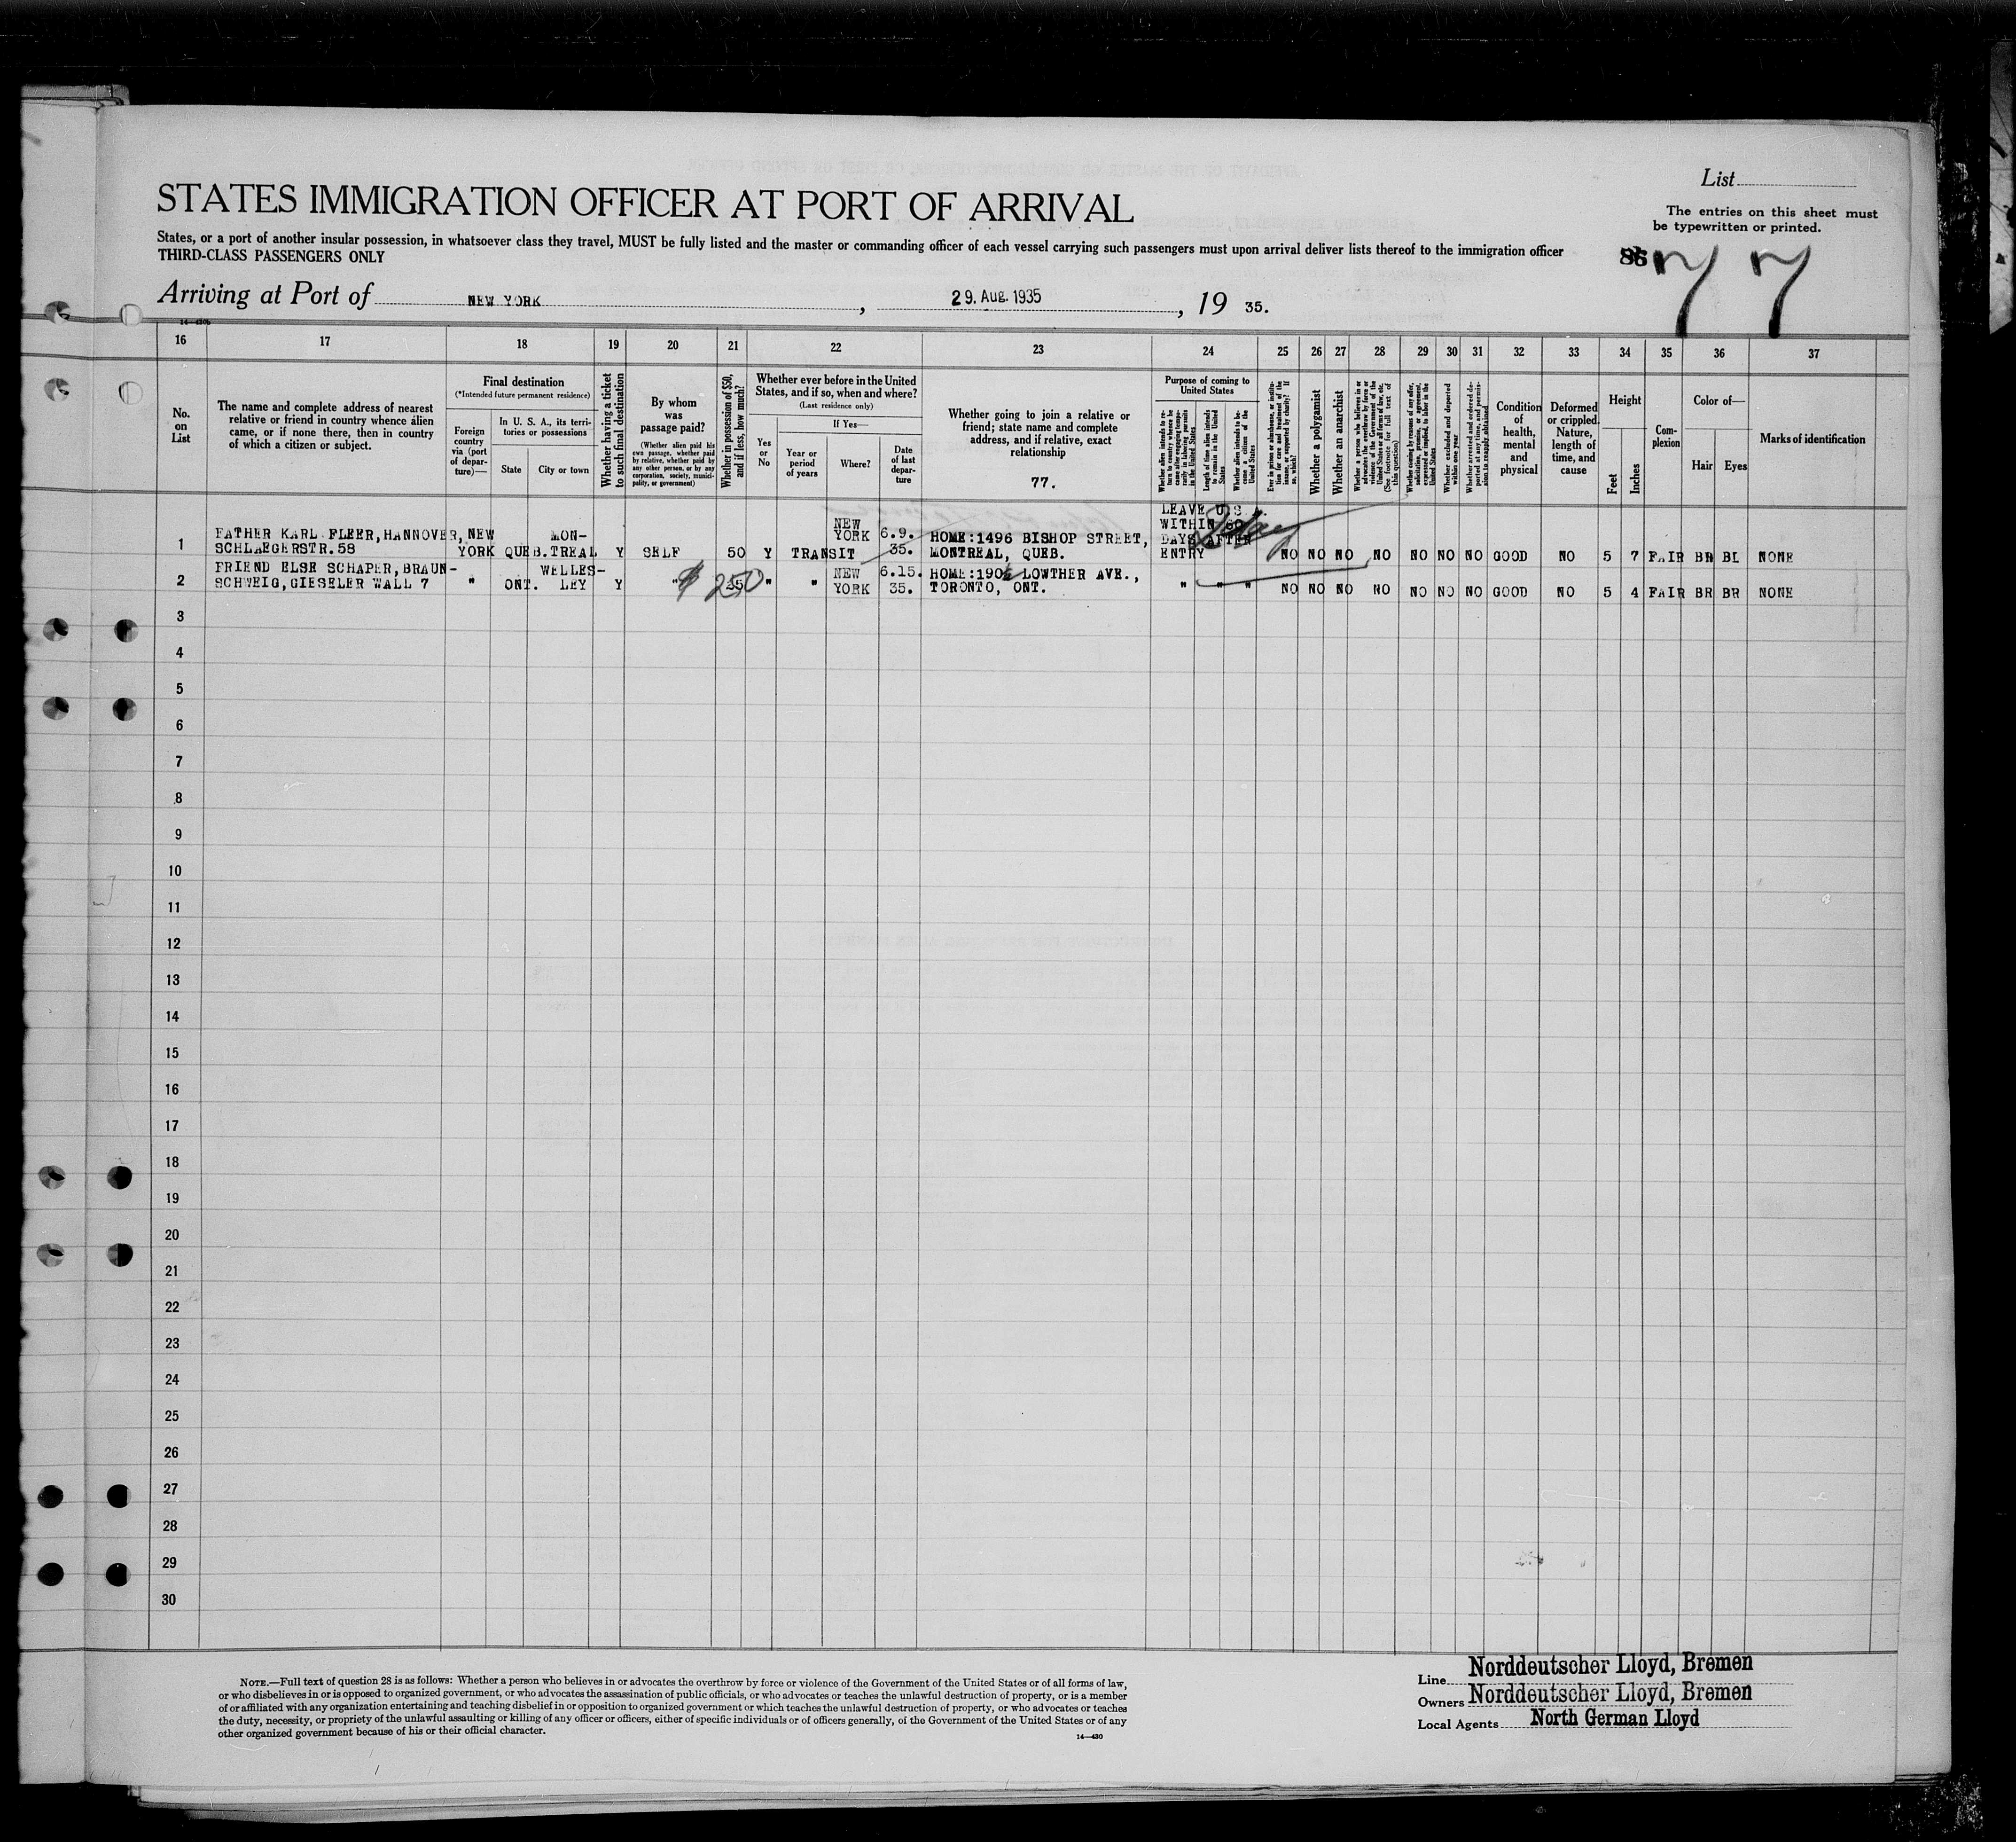 STATES IMMIGRATION OFFICER AT PORT OF ARRIVAL
List
The entries on this sheet must
be typewritten or printed.
States, or a port of another insular possession, in whatsoever class they travel, MUST be fully listed and the master or commanding officer of each vessel carrying such passengers must upon arrival deliver lists thereof to the immigration officer
THIRD-CLASS PASSENGERS ONLY
86 77
Arriving at Port of NEW YORK, 29. Aug. 1935, 19 35.
16 17 18 19 20 21 22 23 24 25 26 27 28 29 30 31 32 33 34 35 36 37
No.
on
List
The name and complete address of nearest
relative or friend in country whence alien
came, or if none there, then in country
of which a citizen or subject.
Final destination
(*Intended future permanent residence)
Foreign
country
via (port
of depar-
ture)—
In U. S. A., its terri-
tories or possessions
State City or town
Whether having a ticket
to such final destination
By whom
was
passage paid?
(Whether alien paid his
own passage, whether paid
by relative, whether paid by
any other person, or by any
corporation, society, munici-
pality, or government)
Whether in possession of $50,
and if less, how much?
Whether ever before in the United
States, and if so, when and where?
(Last residence only)
Yes
or
No
If Yes—
Year or
period
of years
Where?
Date
of last
depar-
ture
Whether going to join a relative or
friend; state name and complete
address, and if relative, exact
relationship
77.
Purpose of coming to
United States
Whether alien intends to re-
turn to country whence he
came after engaging tempo-
rarily in laboring pursuits
in the United States
Length of time alien intends
to remain in the United
States
Whether alien intends to be-
come a citizen of the
United States
Ever in prison or almshouse, or institu-
tion for care and treatment of the
insane, or supported by charity? If
so, which?
Whether a polygamist
Whether an anarchist
Whether a person who believes in or
advocates the overthrow by force or
violence of the Government of the
United States or all forms of law, etc.
(See footnote for full text of
this question)
Whether coming by reasons of any offer,
solicitation, promise, or agreement,
expressed or implied, to labor in the
United States
Whether excluded and deported
within one year
Whether arrested and ordered de-
ported at any time, and permis-
sion to reapply obtained
Condition
of
health,
mental
and
physical
Deformed
or crippled.
Nature,
length of
time, and
cause
Height
Feet Inches
Com-
plexion
Color of—
Hair Eyes
Marks of identification
1 FATHER KARL FLEER, HANNOVER,
SCHLAEGERSTR.58
NEW
YORK QUEB. MON-
TREAL Y SELF 50 Y TRANSIT NEW
YORK 6.9.
35. HOME:1496 BISHOP STREET,
MONTREAL, QUEB.
LEAVE U.S.
WITHIN 60
DAYS AFTER
ENTRY
NO NO NO NO NO NO NO GOOD NO 5 7 FAIR BR BL NONE
2 FRIEND ELSE SCHAPER, BRAUN-
SCHWEIG, GIESELER WALL 7
" ONT. WELLES-
LEY Y " $250 " " NEW
YORK 6.15.
35. HOME:190½ LOWTHER AVE.,
TORONTO, ONT.
" " " NO NO NO NO NO NO NO GOOD NO 5 4 FAIR BR BR NONE
3
4
5
6
7
8
9
10
11
12
13
14
15
16
17
18
19
20
21
22
23
24
25
26
27
28
29
30
NOTE.—Full text of question 28 is as follows: Whether a person who believes in or advocates the overthrow by force or violence of the Government of the United States or of all forms of law,
or who disbelieves in or is opposed to organized government, or who advocates the assassination of public officials, or who advocates or teaches the unlawful destruction of property, or is a member
of or affiliated with any organization entertaining and teaching disbelief in or opposition to organized government or which teaches the unlawful destruction of property, or who advocates or teaches
the duty, necessity, or propriety of the unlawful assaulting or killing of any officer or officers, either of specific individuals or of officers generally, of the Government of the United States or of any
other organized government because of his or their official character.
14—430
Line Norddeutscher Lloyd, Bremen
Owners Norddeutscher Lloyd, Bremen
Local Agents North German Lloyd